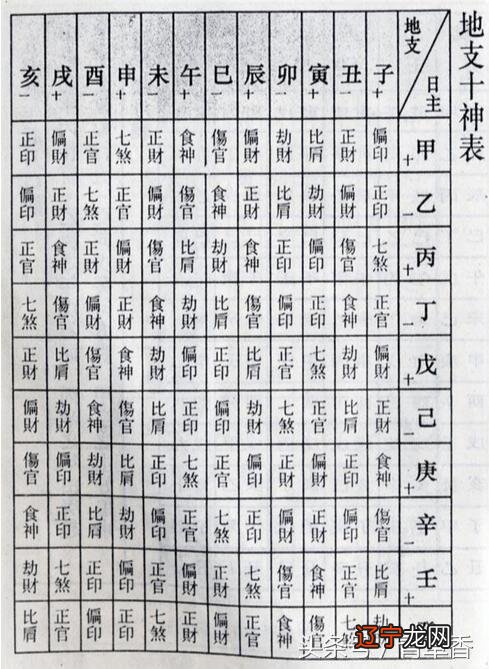 地支十神表
地支 日主 子+ 丑- 寅+ 卯- 辰+ 巳- 午+ 未- 申+ 酉- 戌+ 亥-
甲+ 偏印 正財 比肩 劫財 偏財 傷官 食神 正財 七煞 正官 偏財 正印
乙- 正印 偏財 劫財 比肩 正財 食神 傷官 偏財 正官 七煞 正財 偏印
丙+ 七煞 傷官 偏印 正印 食神 劫財 比肩 傷官 偏財 正財 食神 正官
丁- 正官 食神 正印 偏印 傷官 比肩 劫財 食神 正財 偏財 傷官 七煞
戊+ 偏財 劫財 七煞 正官 比肩 正印 偏印 劫財 食神 傷官 比肩 正財
己- 正財 比肩 正官 七煞 劫財 偏印 正印 比肩 傷官 食神 劫財 偏財
庚+ 食神 正印 偏財 正財 偏印 正官 七煞 正印 比肩 劫財 偏印 傷官
辛- 傷官 偏印 正財 偏財 正印 七煞 正官 偏印 劫財 比肩 正印 食神
壬+ 比肩 正官 食神 傷官 七煞 正財 偏財 正官 偏印 正印 七煞 劫財
七 傷官 食神 正官 偏財 正財 七煞 正印 偏印 正官 比肩
头条
辽宁龙网